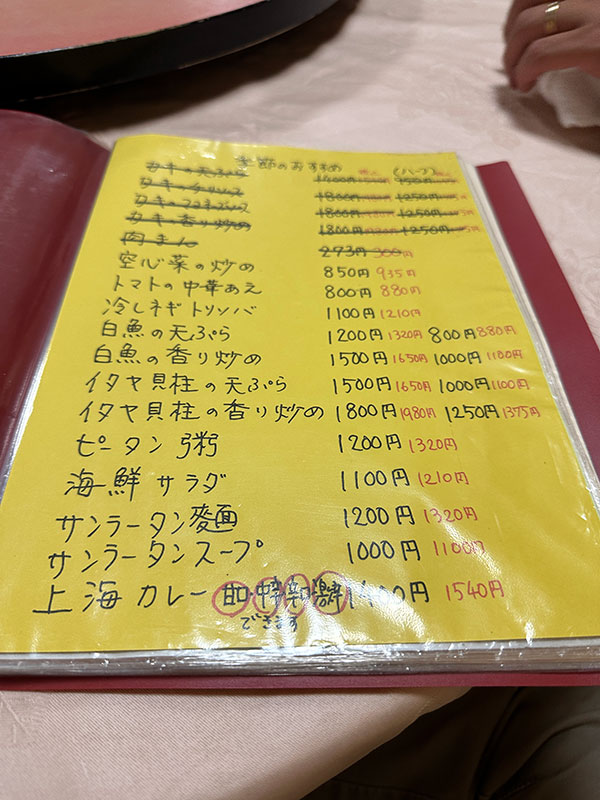 季節のおすすめ
カキの天ぷら 1400円 税込 (ハーフ) 税込
カキのチリソース 1800円 1250円
カキの 1800円 1250円
カキの香り炒め 1800円 1250円
肉まん 273円 300円
空心菜の炒め 850円 935円
トマトの中華あえ 800円 880円
冷しネギトリソバ 1100円 1210円
白魚の天ぷら 1200円 1320円 800円 880円
白魚の香り炒め 1500円 1650円 1000円 1100円
イタヤ貝柱の天ぷら 1500円 1650円 1000円 1100円
イタヤ貝柱の香り炒め 1800円 1980円 1250円 1375円
ピータン粥 1200円 1320円
海鮮サラダ 1100円 1210円
サンラータン麺 1200円 1320円
サンラータンスープ 1000円 1100円
上海カレー 甘口 中辛 辛口 激辛 1400円 1540円
できます